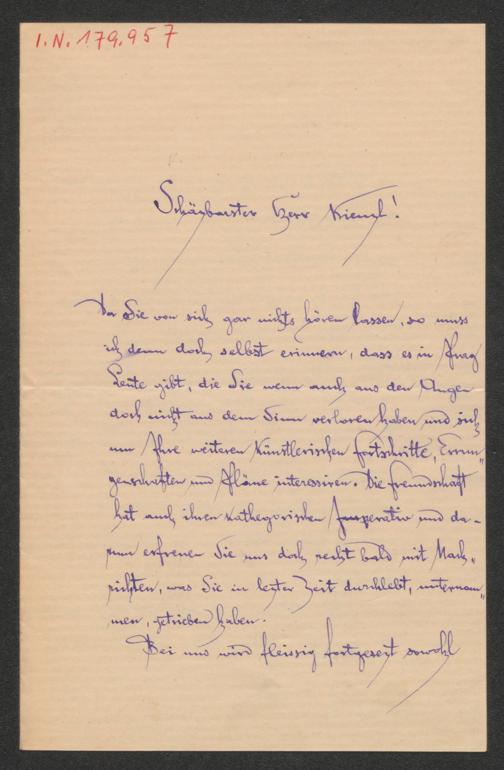 I.N. 179.957
Schäzbarster Herr Kienzl!
Da Sie von sich gar nichts hören lassen, so muss
ich denn doch selbst erinnern, dass es in Prag
Leute gibt, die Sie wenn auch aus den Augen
doch nicht aus dem Sinn verloren haben und sich
um Ihre weiteren künstlerischen Fortschritte, Errun„
genschaften und Pläne interessiren. Die Freundschaft
hat auch ihren kathegorischen Imperativ und da-
rum erfreuen Sie uns doch recht bald mit Nach„
richten, was Sie in lezter Zeit durchlebt, unternom„
men, getrieben haben.
Bei uns wird fleissig fortgesezt sowohl